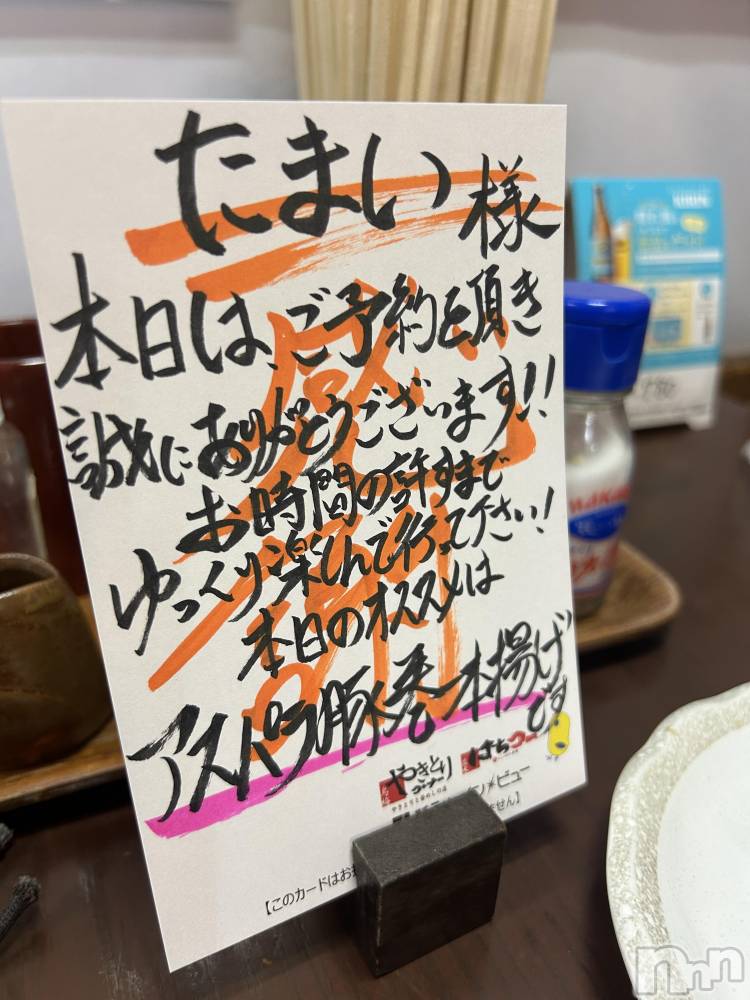 たまい様
本日は、ご予約を頂き
誠にありがとうございます!!
お時間の許すまで
ゆっくり楽しんで行って下さい!
本日のオススメは
アスパラ豚巻一本揚げ
です。
感謝
やきとり
はちつー
【このカードはお
ません】
ビュー
nnn